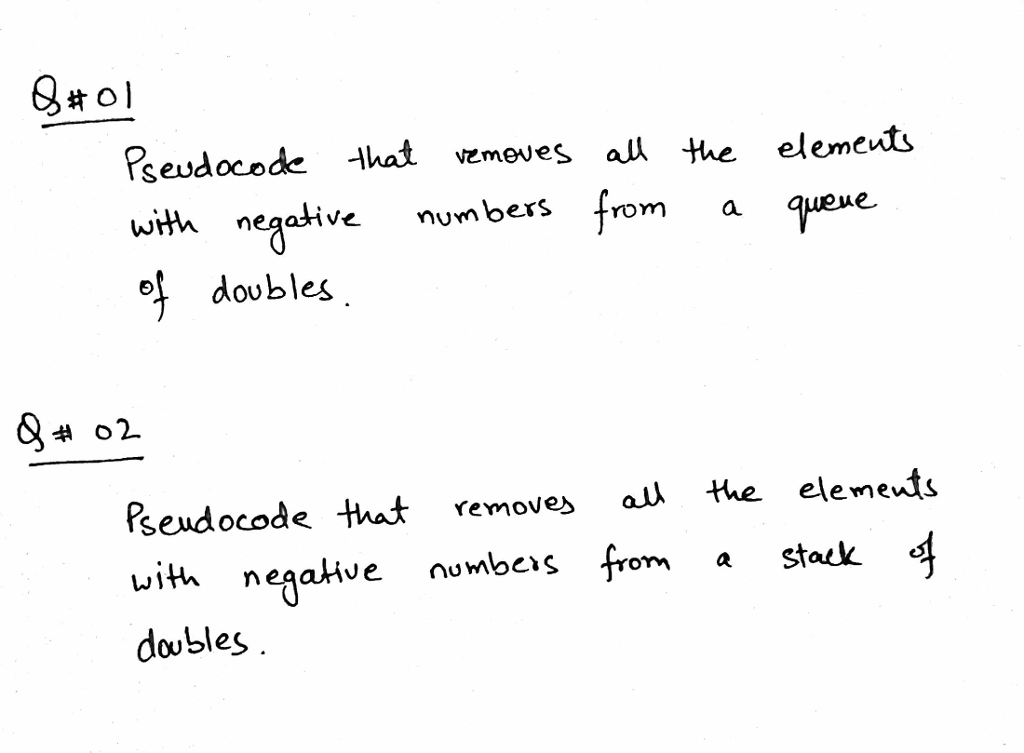 Q # 01
Pseudocode that removes all the elements
with negative numbers from a queue
of doubles.
Q # 02
Pseudocode that removes all the elements
with negative numbers from a stack of
doubles.